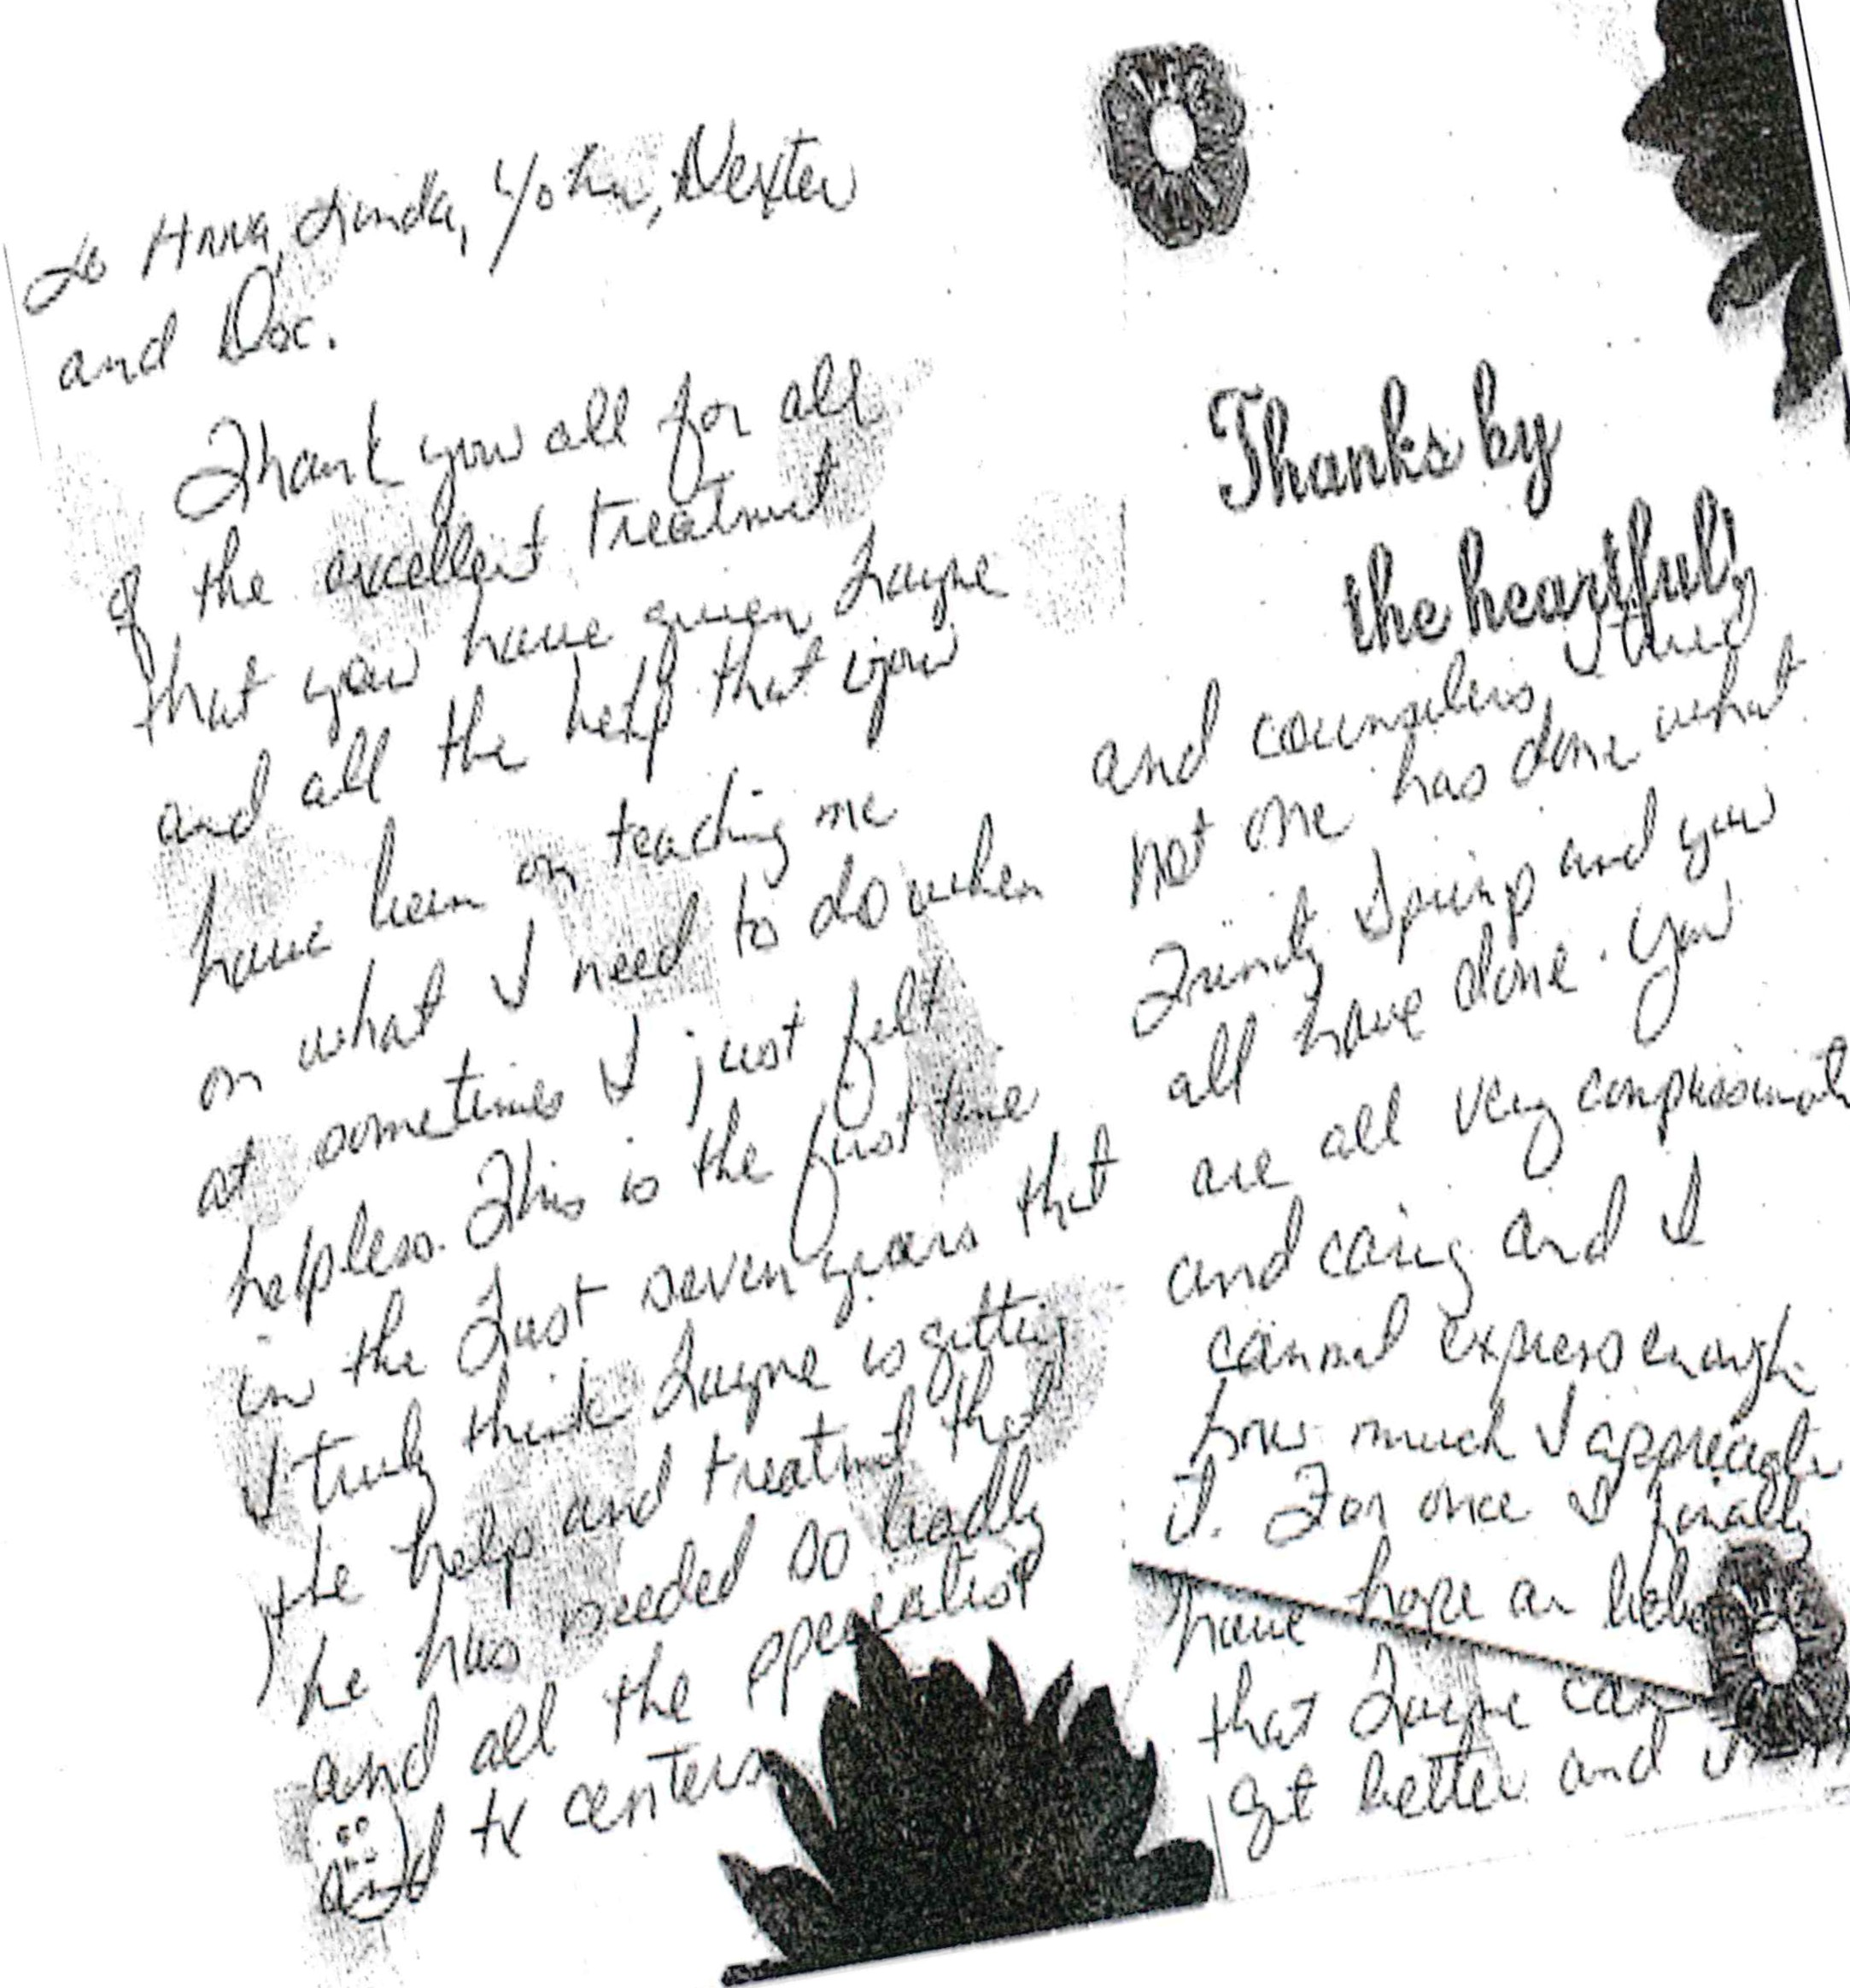 To Anna, Linda, John, Dexter
and Doc.
Thank you all for all
of the excellent treatment
that you have given Layne
and all the help that you
have been on teaching me
on what I need to do when
at sometimes I just felt
helpless. This is the first time
in the last seven years that
I truly think Layne is getting
the help and treatment that
he has needed so badly
and all the specialist
and tx centers
Thanks by
the heartful!
and counselors I tried
not one has done what
Trinity Spring and you
all have done. You
are all very compassionate
and caring and I
cannot express enough
how much I appreciate
it. For once I finally
have hope an
that Layne can
get better and I